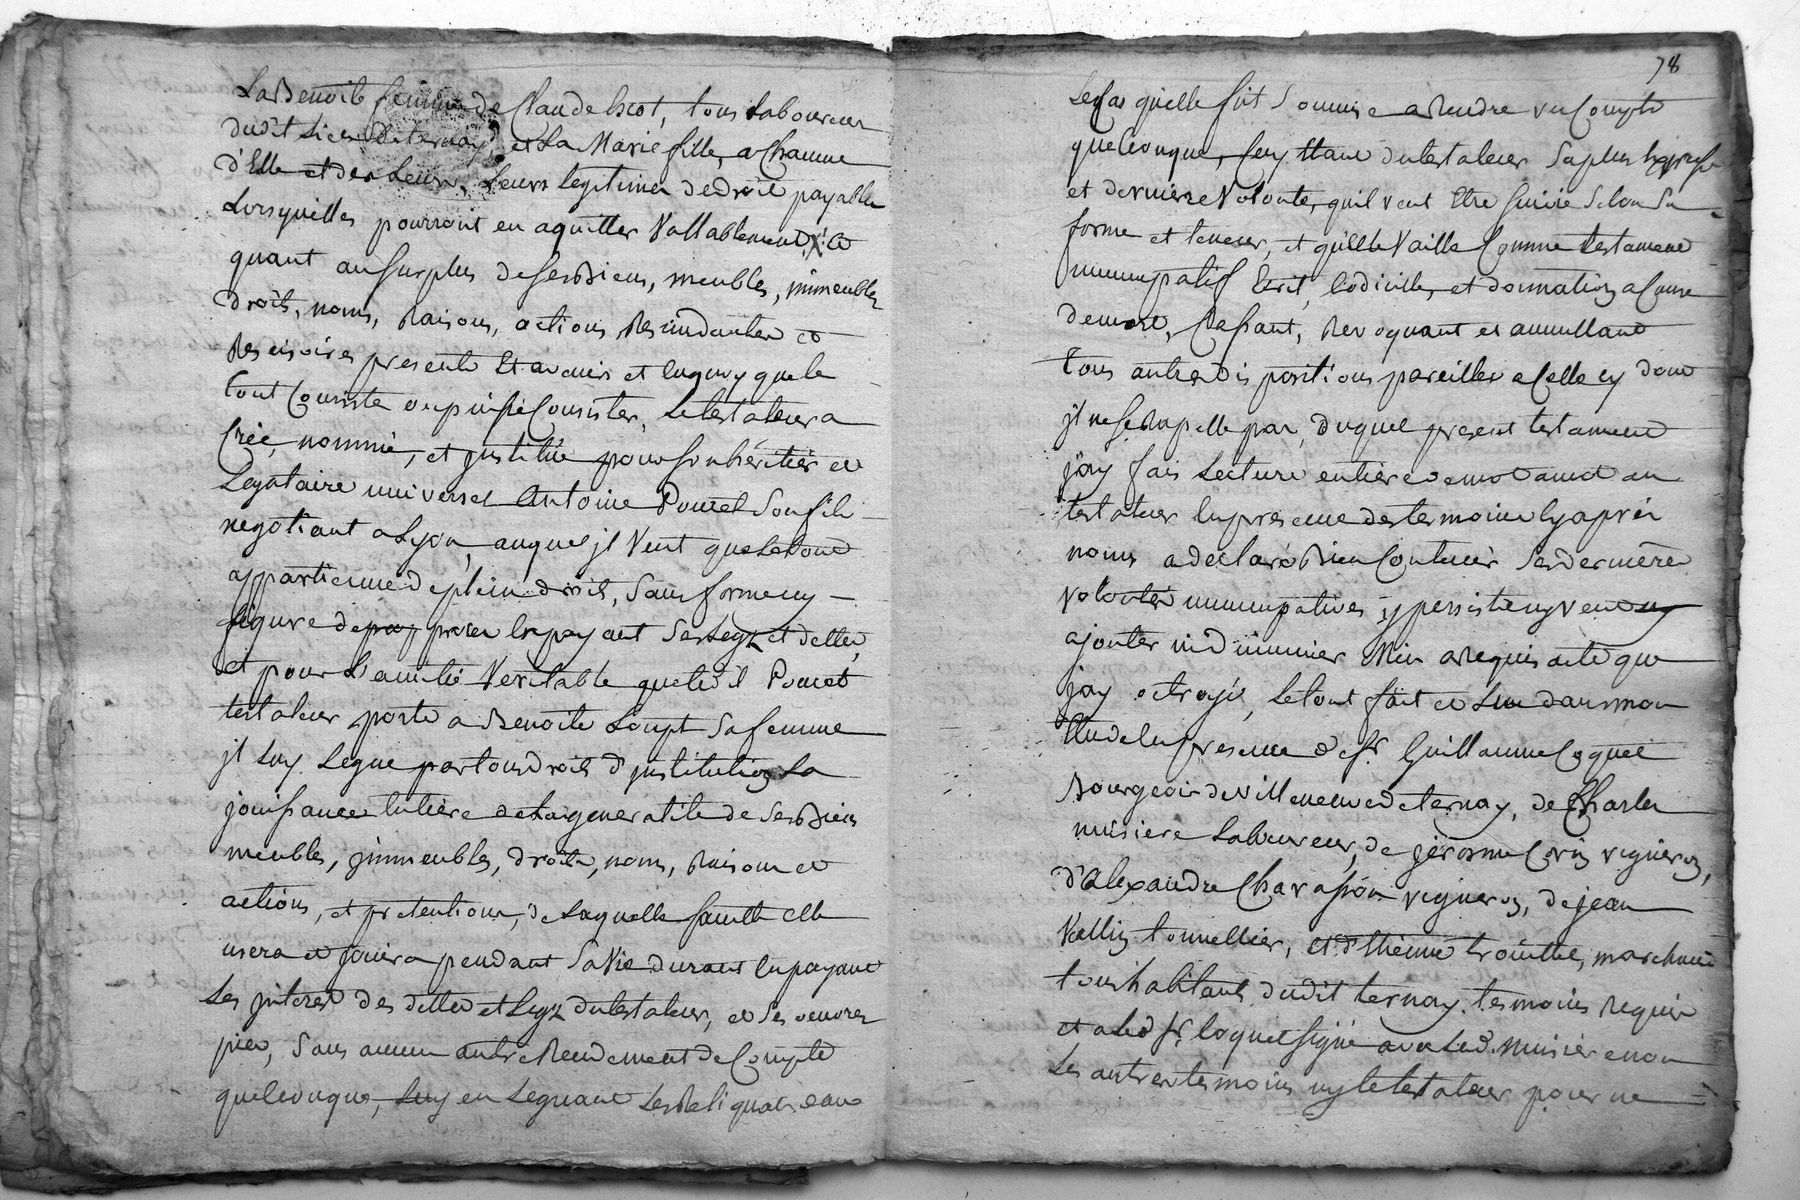 La Benoite femme de Claude hcot, tous Laboureur
dudit Lieu de ternay, et La Marie fille, a Chacune
d'Elle et des Leurs, Leurs legitimes de droit payable
Lorsquelles pourront en aquitter Vallablement, Et
quant au surplus de ses Biens, meubles, immeubles
droits, noms, Raisons, actions, Rescindantes et
Rescisoires presents Et avenirs et en quoy que le
tout Consiste ou puisse Consister, Le testateur a
Créé, nommé, et justitüé pour son héritier et
Legataire universel Antoine Pomet Son fils
negotiant a Lyon, auquel jl Veut que Le tout
appartienne de plein droit, Sans forme ny
figure de procez En payant Ses Legz et dettes,
et pour L'amitié Veritable que led. Pomet
testateur porte a Benoite Loupt Sa femme
jl Luy Legue par tous droits d'justitution La
jouissance Entiere de La generalité de Ses Biens
meubles, jmmeubles, droits, noms, Raisons et
actions, et pretentions, de Laquelle faculté elle
usera et jouira pendant Sa Vie durant En payant
Les jnterest des dettes et Legz du testateur, et Ses oeuvres
pies, Sans aucun autre Rendement de Compte
quelconque, Luy en Leguant Les Reliquats, dans
78
Le Cas quelle fut Soumise a Rendre un Compte
quelconque, Cecy Etant du testateur Sa plus Expresse
et derniere Volonté, quil veut Etre suivie Selon Sa
forme et teneur, et quelle Vaille Comme testament
nuncupatif Ecrit, Codicille, et donnation a Cause
de mort, Cassant, Revoquant et annullant
tous autres dispositions pareilles a Celle cy dont
jl ne se Rapelle pas, duquel present testament
j'ay fais Lecture entiere de mot a mot au
testateur En presence des temoins Cy après
noms a declaré Bien Contenir Ses derniere
volontés nuncupatives, y persiste ny veut
ajouter ni diminuer Rien a Requis acte que
j'ay octroyé, Le tout fait et Lu dans mon
Etude En presence de sr. Guillaume Coquet
Bourgeois de villeneuve de ternay, de Charles
misiere Laboureur, de jerosme Corin vigneron,
d'alexandre Chavasson vigneron, de jean
Vallin tonnellier, et d'Etienne trouillet, marchand
tous habitants dudit ternay, temoins Requis
et a Led. sr. Coquet signé avec Led. misiere non
Les autres temoins ny le testateur pour ne